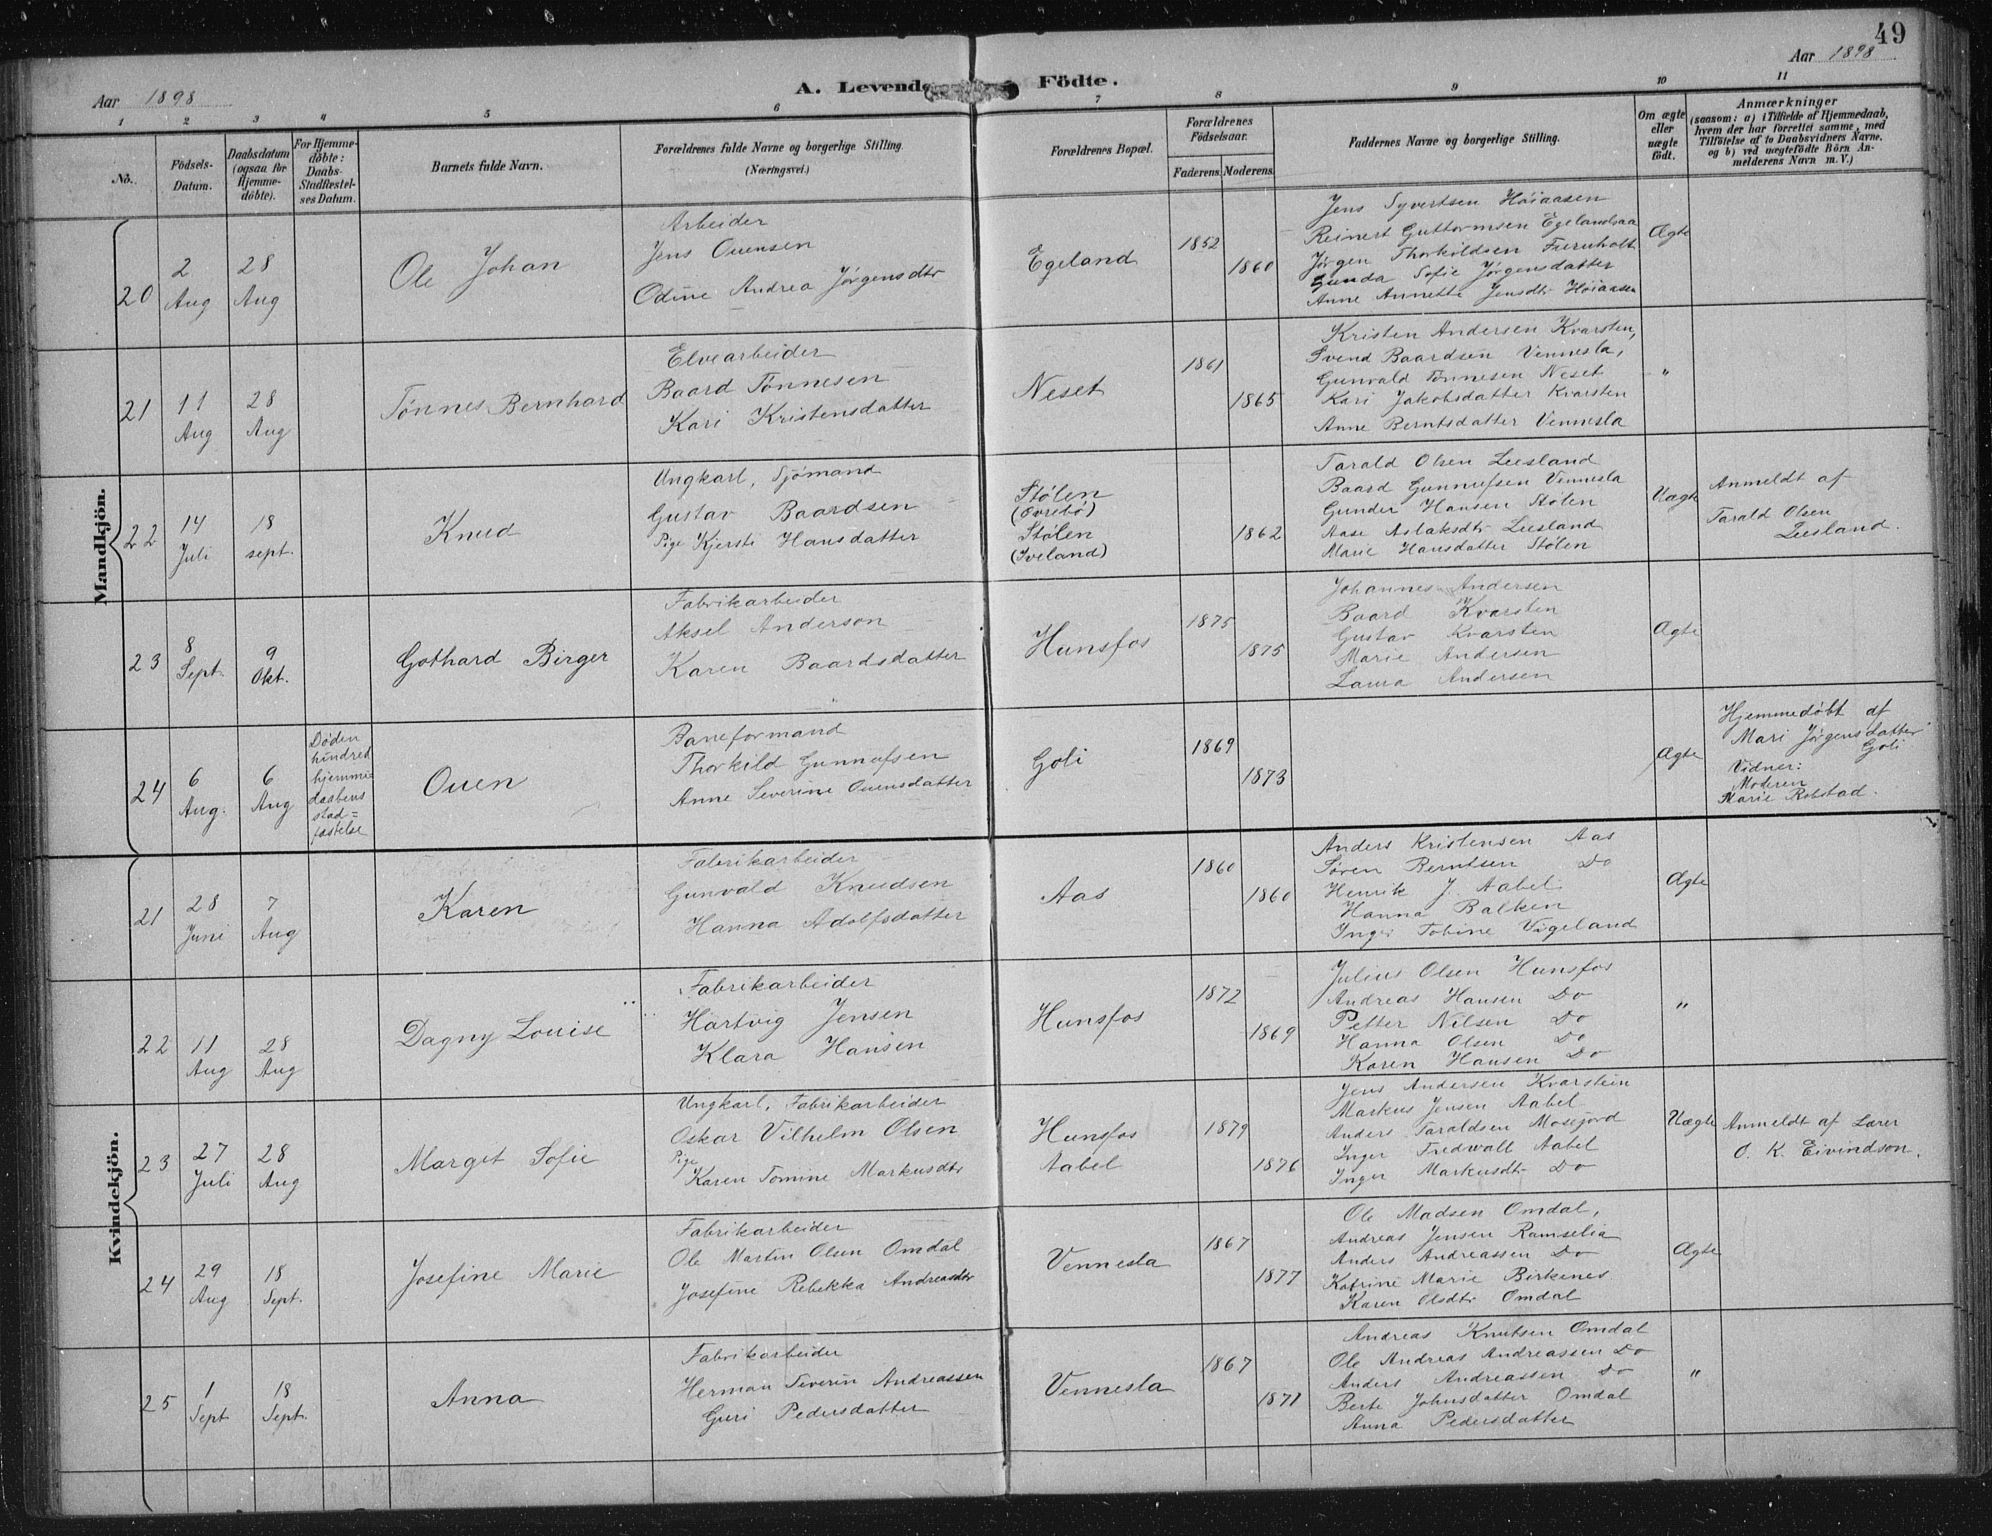 49
Aar 1898
A. Levende Födte.
Aar 1898
1 2 3 4 5 6 7 8 9 10 11
No.
Födsels-
Datum.
Daabsdatum
(ogsaa for
Hjemme-
döbte).
For Hjemme-
döbte:
Daabs-
Stadfæstel-
ses Datum.
Barnets fulde Navn.
Forældrenes fulde Navne og borgerlige Stilling.
(Næringsvei.)
Forældrenes Bopæl.
Forældrenes
Födselsaar.
Faderens. Moderens.
Faddernes Navne og borgerlige Stilling.
Om ægte
eller
uægte
födt.
Anmærkninger
(saasom: a) i Tilfælde af Hjemmedaab,
hvem der har forrettet samme, med
Tilföielse af to Daabsvidners Navne,
og b) ved uægtefödte Börn An-
melderens Navn m. V.)
Mandkjön.
20
2
Aug
28
Aug
Ole Johan
Arbeider
Jens Ouensen
Odine Andrea Jørgensdtr
Egeland
1852
1860
Jens Syvertsen Høiaasen
Reinert Guttormsen Egelandsaa
Jørgen Thorkildsen Furuholt
Gunda Sofie Jørgensdatter
Anne Annette Jensdtr Høiaasen
Ægte
21
11
Aug
28
Aug
Tønnes Bernhard
Elvearbeider
Baard Tønnesen
Kari Kristensdatter
Neset
1861
1865
Kristen Andersen Kvarsten,
Svend Baardsen Vennesla,
Gunvald Tønnesen Neset
Kari Jakobsdatter Kvarsten
Anne Berntsdatter Vennesla
"
22
14
Juli
18
sept.
Knud
Ungkarl, Sjömand
Gustav Baardsen
Pige Kjersti Hansdatter
Stølen
(Øvrebö)
Stølen
(Iveland)
1862
Tarald Olsen Leesland
Baard Gunnufsen Vennesla
Gunder Hansen Stølen
Aase Aslaksdtr Leesland
Marie Hansdatter Stølen
Uægte
Anmeldt af
Tarald Olsen
Leesland.
23
8
Sept.
9
Okt.
Gothard Birger
Fabrikarbeider
Aksel Anderson
Karen Baardsdatter
Hunsfos
1875
1875
Johannes Andersen
Baard Kvarsten
Gustav Kvarsten
Marie Andersen
Laura Andersen
Ægte
24
6
Aug.
6
Aug
Døden
hindred
hjemme
daabens
stad=
fæstelse
Ouen
Baneformand
Thorkild Gunnufsen
Anne Severine Ouensdatter
Goli
1869
1873
Ægte
Hjemmedøbt af
Mari Jørgensdatter
Goli
Vidner:
Moderen
Marie Robstad.
Kvindekjön.
21
28
Juni
7
Aug
Karen
Fabrikarbeider
Gunvald Knudsen
Hanna Adolfsdatter
Aas
1860
1860
Anders Kristensen Aas
Søren Berntsen Do
Henrik J. Aabel
Hanna Balken
Inger Tobine Vigeland
Ægte
22
11
Aug
28
Aug
Dagny Louise
Fabrikarbeider
Hartvig Jensen
Klara Hansen
Hunsfos
1872
1869
Julius Olsen Hunsfos
Andreas Hansen Do
Petter Nilsen Do
Hanna Olsen Do
Karen Hansen Do
"
23
27
Juli
28
Aug
Margit Sofie
Ungkarl, Fabrikarbeider
Oskar Vilhelm Olsen
Pige
Karen Tomine Markusdtr
Hunsfos
Aabel
1879
1876
Jens Andersen Kvarstein
Markus Jensen Aabel
Anders Taraldsen Mosejord
Inger Fredwall Aabel
Inger Markusdtr Do
Uægte
Anmeldt af Lærer
O. K. Eivindson.
24
29
Aug
18
Sept.
Josefine Marie
Fabrikarbeider
Ole Martin Olsen Omdal
Josefine Rebekka Andreasdtr
Vennesla
1867
1877
Ole Madsen Omdal,
Andreas Jensen Ramselia
Anders Andreassen Do
Katrine Marie Birkenes
Karen Olsdtr Omdal
Ægte
25
1
Sept
18
Sept.
Anna
Fabrikarbeider
Herman Severin Andreassen
Guri Pedersdatter
Vennesla
1867
1871
Andreas Knutsen Omdal
Ole Andreas Andreassen Do
Anders Andreassen Do
Berte Johnsdatter Omdal
Anna Pedersdatter
"